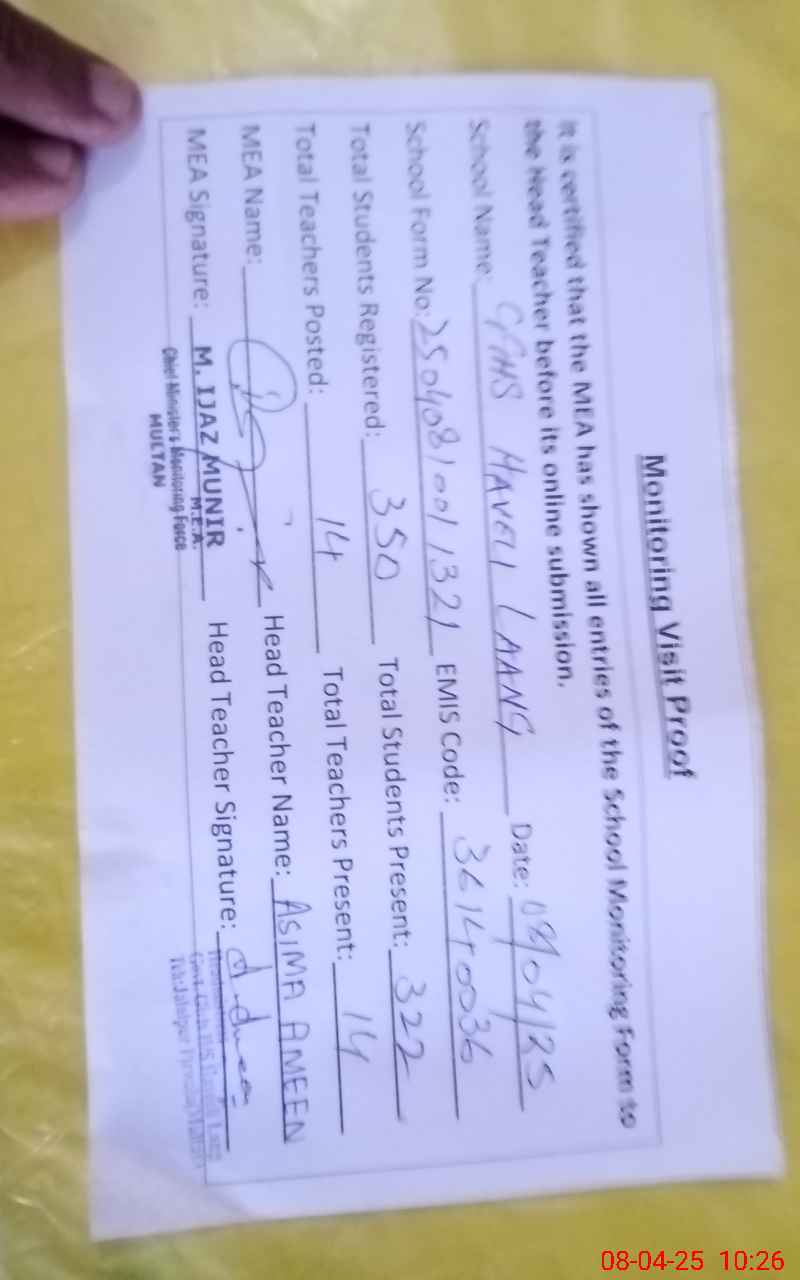 Monitoring Visit Proof
It is certified that the MEA has shown all entries of the School Monitoring Form to
the Head Teacher before its online submission.
School Name: GGHS HAVELI LAANG Date: 08/04/25
School Form No: 25040810011321 EMIS Code: 36140036
Total Students Registered: 350 Total Students Present: 322
Total Teachers Posted: 14 Total Teachers Present: 14
MEA Name: Head Teacher Name: ASIMA AMEEN
MEA Signature: M. IJAZ MUNIR Head Teacher Signature:
M.E.A.
Chief Minister's Monitoring Force
MULTAN
08-04-25 10:26